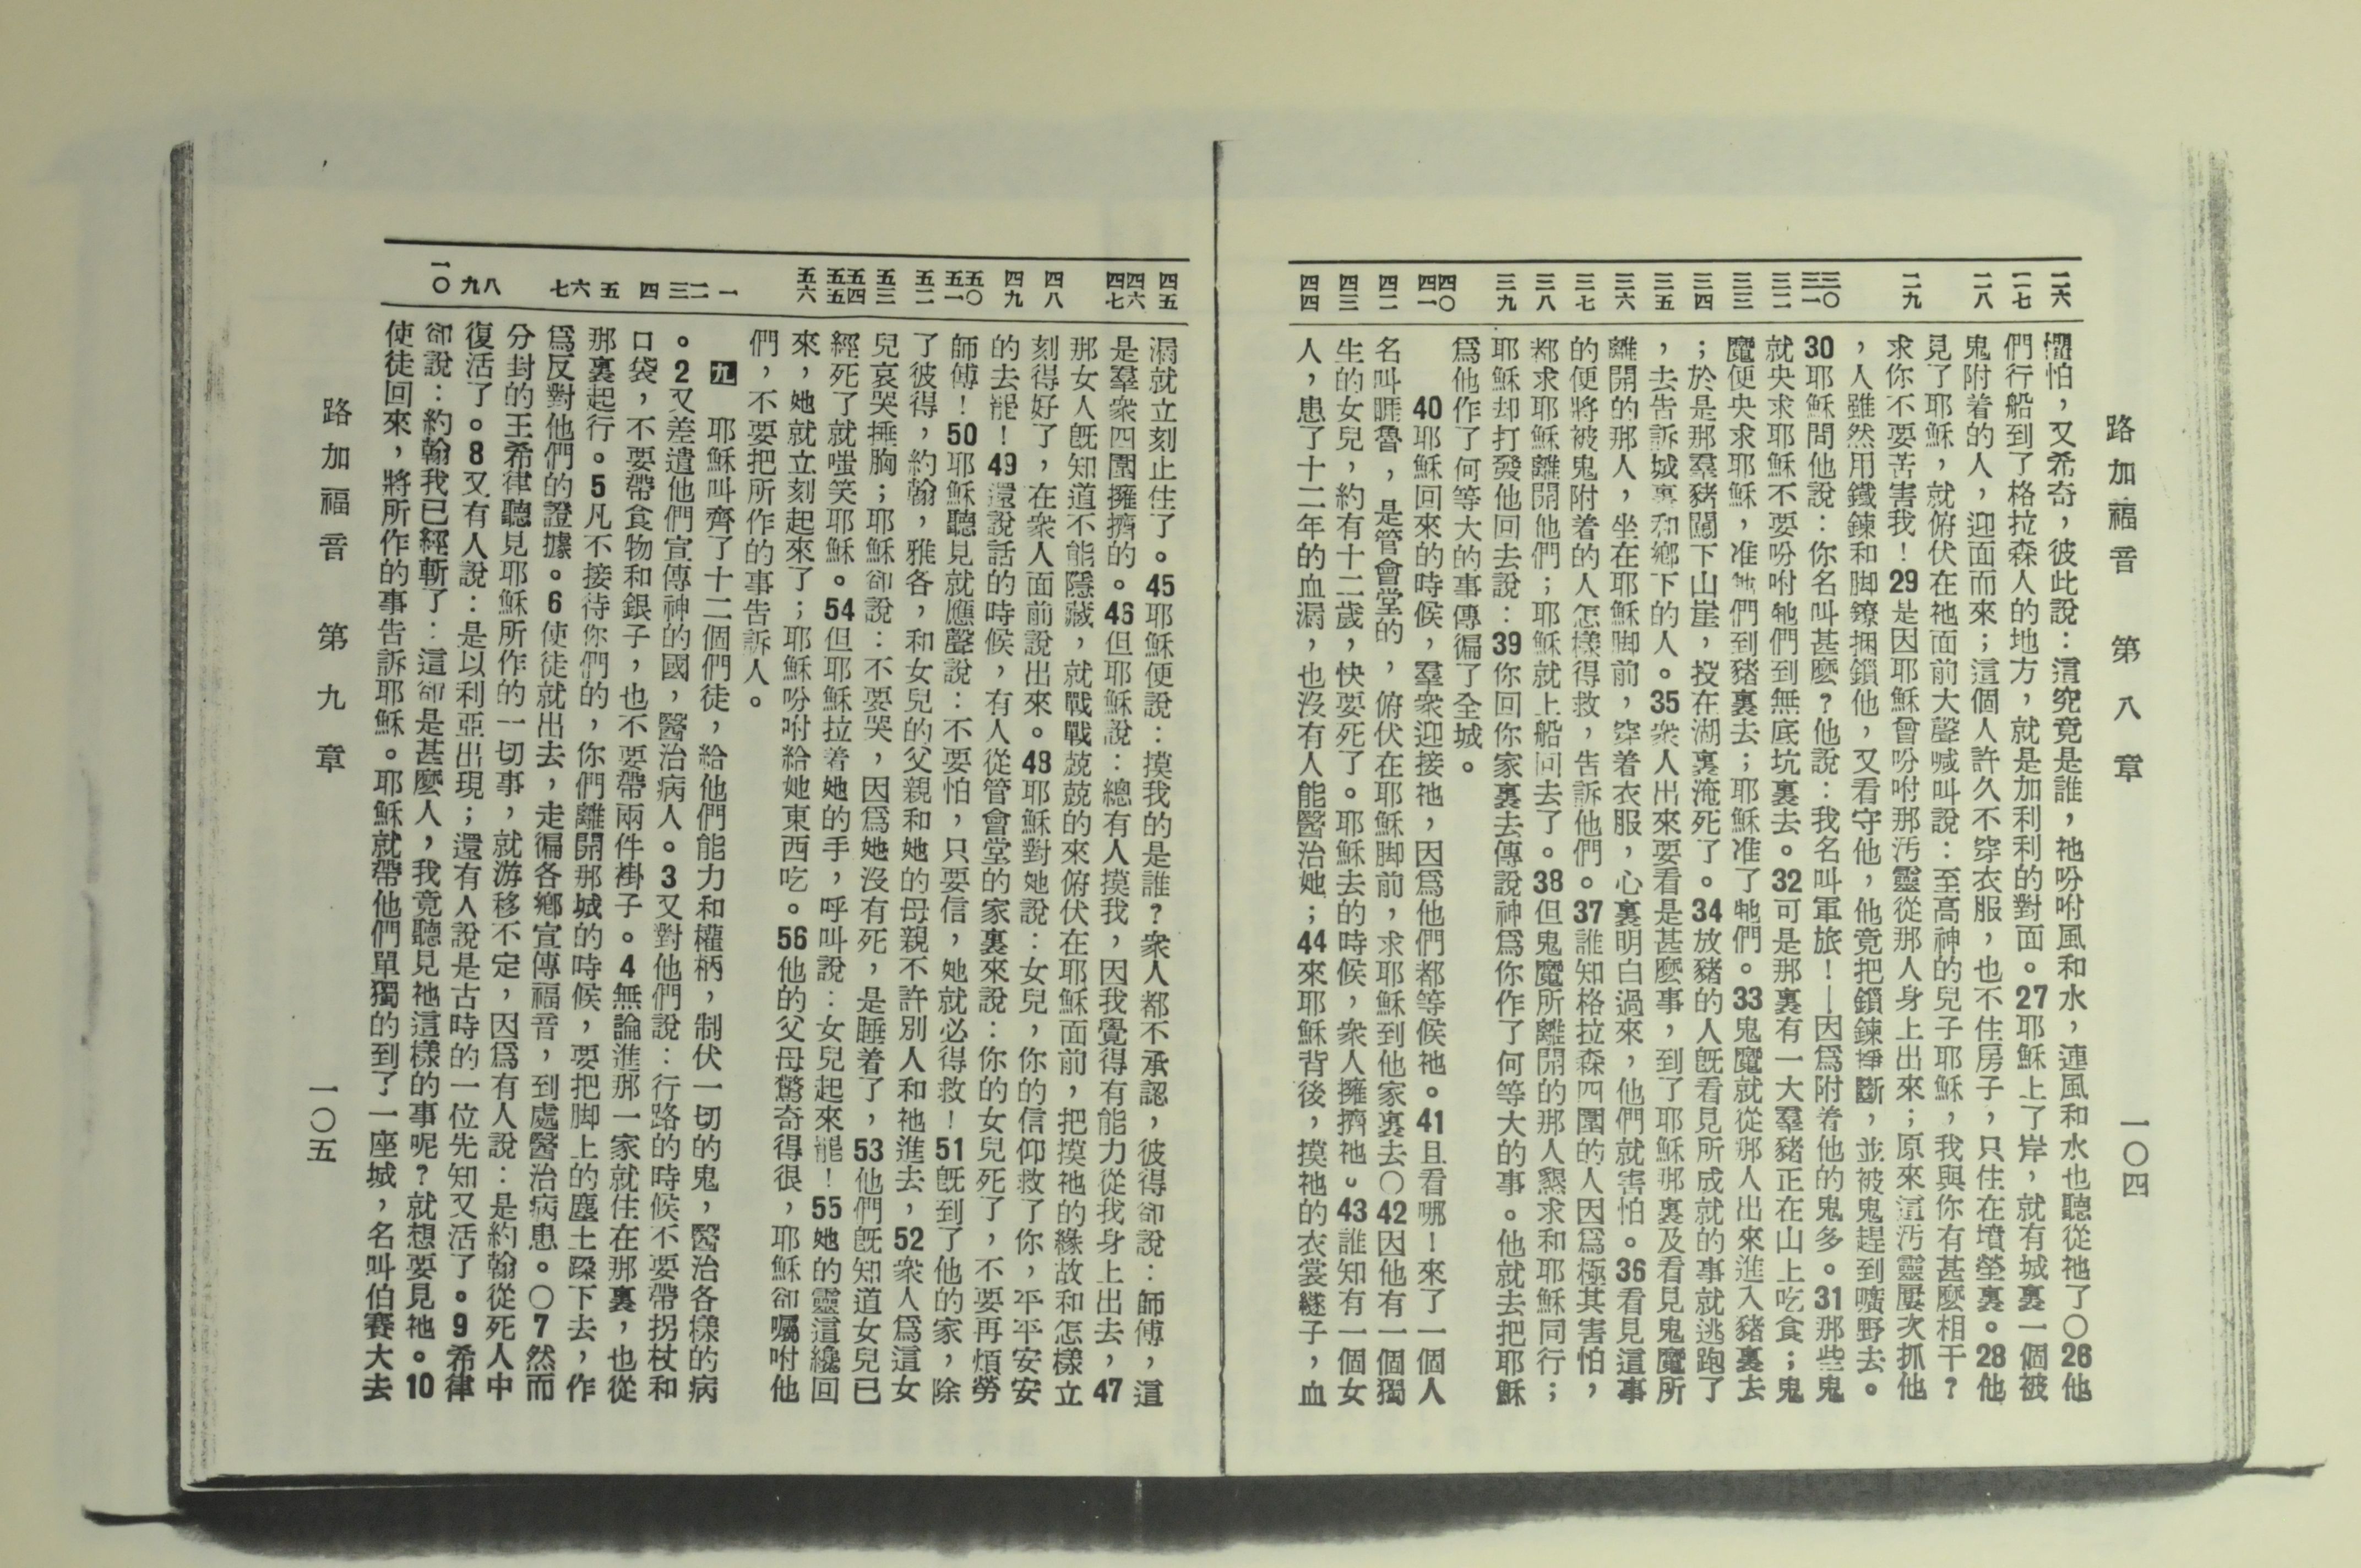 路加福音 第八章 一〇四
二六 二七 二八 二九 三〇 三一 三二 三三 三四 三五 三六 三七 三八 三九 四〇 四一 四二 四三 四四
懼怕，又希奇，彼此說：這究竟是誰，祂吩咐風和水，連風和水也聽從祂了〇26他
們行船到了格拉森人的地方，就是加利利的對面。27耶穌上了岸，就有城裏一個被
鬼附着的人，迎面而來；這個人許久不穿衣服，也不住房子，只住在墳塋裏。28他
見了耶穌，就俯伏在祂面前大聲喊叫說：至高神的兒子耶穌，我與你有甚麼相干？
求你不要苦害我！29是因耶穌曾吩咐那汚靈從那人身上出來；原來這汚靈屢次抓他
，人雖然用鐵鍊和脚鐐捆鎖他，又看守他，他竟把鎖鍊掙斷，並被鬼趕到曠野去。
30耶穌問他說：你名叫甚麼？他說：我名叫軍旅！—因爲附着他的鬼多。31那些鬼
就央求耶穌不要吩咐牠們到無底坑裏去。32可是那裏有一大羣豬正在山上吃食；鬼
魔便央求耶穌，准牠們到豬裏去；耶穌准了牠們。33鬼魔就從那人出來進入豬裏去
；於是那羣豬闖下山崖，投在湖裏淹死了。34放豬的人旣看見所成就的事就逃跑了
，去告訴城裏和鄉下的人。35衆人出來要看是甚麼事，到了耶穌那裏及看見鬼魔所
離開的那人，坐在耶穌脚前，穿着衣服，心裏明白過來，他們就害怕。36看見這事
的便將被鬼附着的人怎樣得救，告訴他們。37誰知格拉森四圍的人因爲極其害怕，
都求耶穌離開他們；耶穌就上船回去了。38但鬼魔所離開的那人懇求和耶穌同行；
耶穌却打發他回去說：39你回你家裏去傳說神爲你作了何等大的事。他就去把耶穌
爲他作了何等大的事傳徧了全城。
40耶穌回來的時候，羣衆迎接祂，因爲他們都等候祂。41且看哪！來了一個人
名叫睚魯，是管會堂的，俯伏在耶穌脚前，求耶穌到他家裏去〇42因他有一個獨
生的女兒，約有十二歲，快要死了。耶穌去的時候，衆人擁擠祂。43誰知有一個女
人，患了十二年的血漏，也沒有人能醫治她；44來耶穌背後，摸祂的衣裳繸子，血
四五 四六 四七 四八 四九 五〇 五一 五二 五三 五四 五五 五六 一 二 三 四 五 六 七 八 九 一〇
漏就立刻止住了。45耶穌便說：摸我的是誰？衆人都不承認，彼得卻說：師傅，這
是羣衆四圍擁擠的。46但耶穌說：總有人摸我，因我覺得有能力從我身上出去，47
那女人旣知道不能隱藏，就戰戰兢兢的來俯伏在耶穌面前，把摸祂的緣故和怎樣立
刻得好了，在衆人面前說出來。48耶穌對她說：女兒，你的信仰救了你，平平安安
的去罷！49還說話的時候，有人從管會堂的家裏來說：你的女兒死了，不要再煩勞
師傅！50耶穌聽見就應聲說：不要怕，只要信，她就必得救！51旣到了他的家，除
了彼得，約翰，雅各，和女兒的父親和她的母親不許別人和祂進去，52衆人爲這女
兒哀哭捶胸；耶穌卻說：不要哭，因爲她沒有死，是睡着了，53他們旣知道女兒已
經死了就嗤笑耶穌。54但耶穌拉着她的手，呼叫說：女兒起來罷！55她的靈這纔回
來，她就立刻起來了；耶穌吩咐給她東西吃。56他的父母驚奇得很，耶穌卻囑咐他
們，不要把所作的事告訴人。
九 耶穌叫齊了十二個們徒，給他們能力和權柄，制伏一切的鬼，醫治各樣的病
。2又差遣他們宣傳神的國，醫治病人。3又對他們說：行路的時候不要帶拐杖和
口袋，不要帶食物和銀子，也不要帶兩件褂子。4無論進那一家就住在那裏，也從
那裏起行。5凡不接待你們的，你們離開那城的時候，要把脚上的塵土跺下去，作
爲反對他們的證據。6使徒就出去，走徧各鄉宣傳福音，到處醫治病患。〇7然而
分封的王希律聽見耶穌所作的一切事，就游移不定，因爲有人說：是約翰從死人中
復活了。8又有人說：是以利亞出現；還有人說是古時的一位先知又活了。9希律
卻說：約翰我已經斬了：這卻是甚麼人，我竟聽見祂這樣的事呢？就想要見祂。10
使徒回來，將所作的事告訴耶穌。耶穌就帶他們單獨的到了一座城，名叫伯賽大去
路加福音 第九章 一〇五